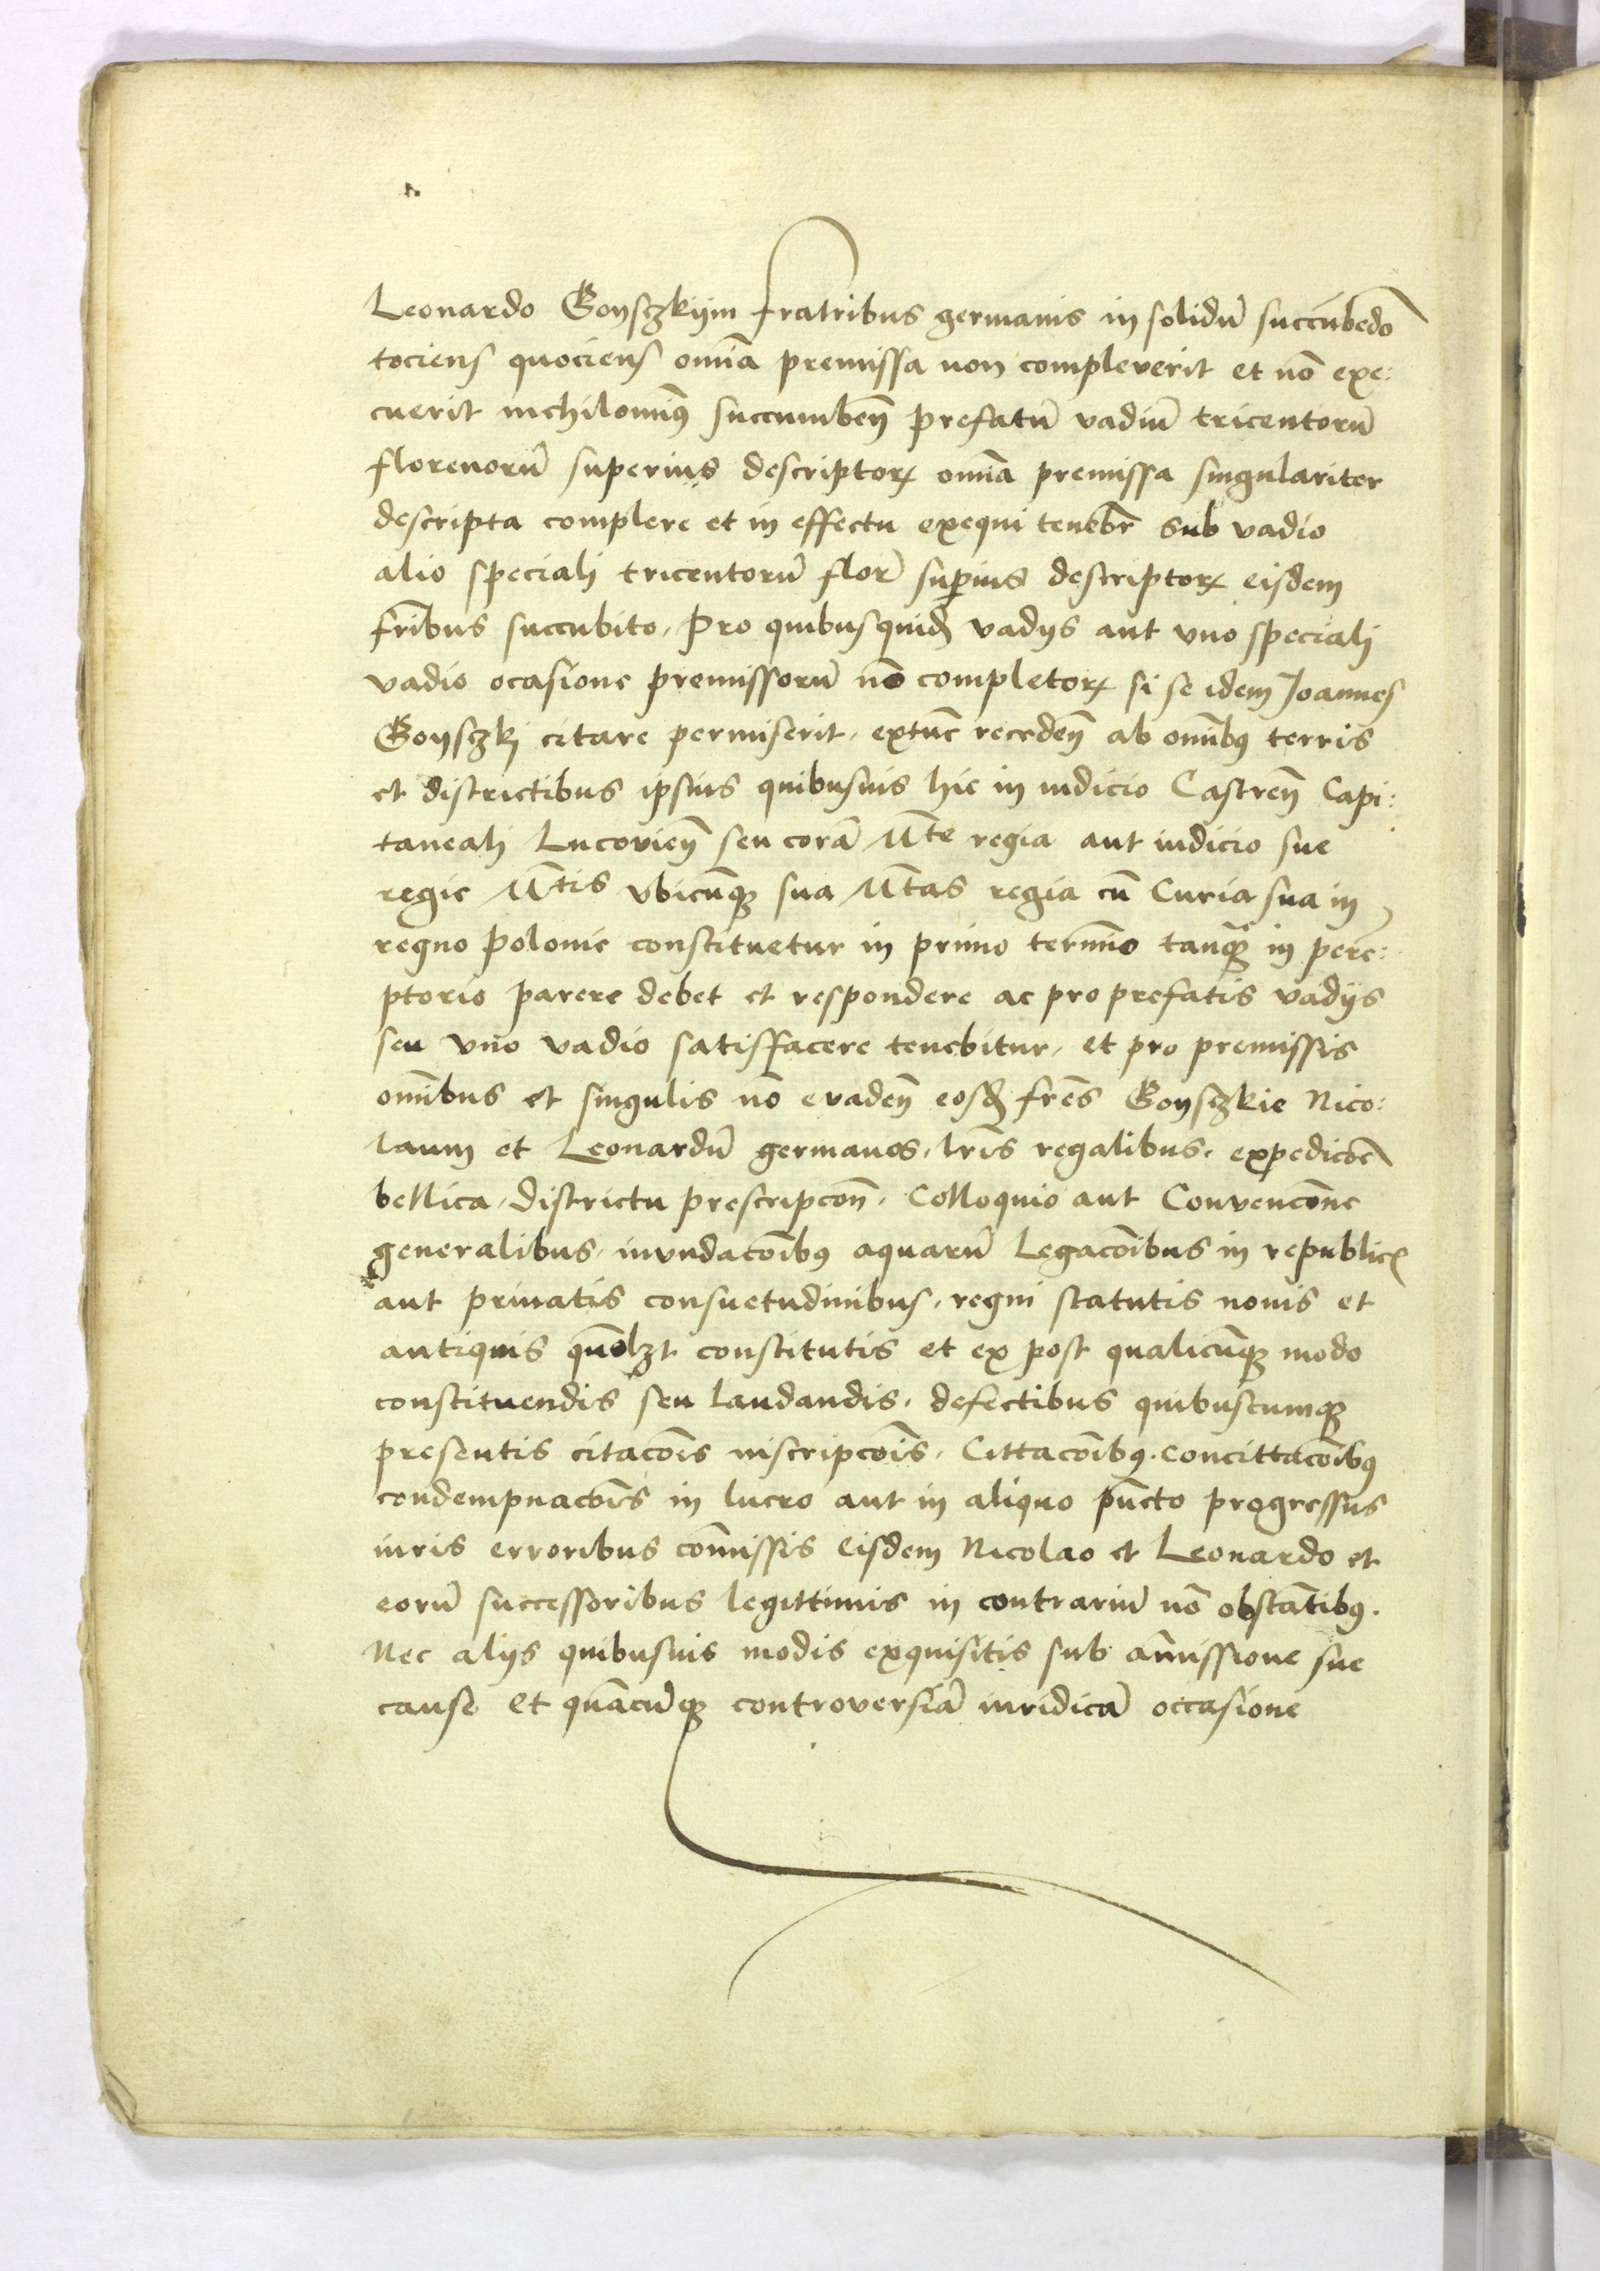 Leonardo Gonsczkijm fratribus germanis in solidū succūbedō
tociens quociens om̄ia premissa non compleverit et nō exe:
cuerit nichilominꝰ succumbeṅ prefatū vadiū tricentorū
florenorū superius descriptoꝝ om̄ia premissa singulariter
descripta complere et in effectu exequi tenebr̄ sub vadio
alio speciali tricentorū flor̄ suꝑius descriptoꝝ eisdem
fr̄ibus succubito, Pro quibusquid̄ vadijs aut vno speciali
vadio ocasione premissorū nō completoꝝ si se idem Joannes
Gonsczkj citare permiserit, extūc recedeṅ ab om̄ibꝰ terris
et districtibus ipsius quibusuis hic in iudicio Castreṅ Capi:
taneali Lucovieṅ seu corā M̄te regia aut iudicio sue
regie M̄tis vbicūqꝫ sua M̄tas regia cū Curia sua in
regno Polonie constituetur in primo termīo tanqꝫ in perē:
ptorio parere debet et respondere ac pro prefatis vadijs
seu vno vadio satisfacere tenebitur, et pro premissis
om̄ibus et singulis nō evadeṅ eosd̄ fr̄es Gonsczkie Nico:
laum et Leonardū germanos, lr̄is regalibus, expedicōe
bellica, districtu prescripcoṅ, Colloquio aut Convencōne
generalibus, invndacōibꝰ aquarū Legacōibus in republicꝭ
aut priuatis consuetudinibus, regni statutis nouis et
antiquis quōlꝫt constitutis et ex post qualicūqꝫ modo
constituendis seu laudandis, defectibus quibuscumqꝫ
presentis citacōis inscripcōis, Cittacōibꝰ, concittacōibꝰ
condempnacōis in lucro aut in aliquo pūcto progressus
iuris erroribus com̄issis Eisdem Nicolao et Leonardo et
eorū successoribus legittimis in contrariū nō obstātibꝰ.
Nec alijs quibusuis modis exquisitis sub am̄issione sue
cause et quācūqꝫ controversiā iuridicā occasione